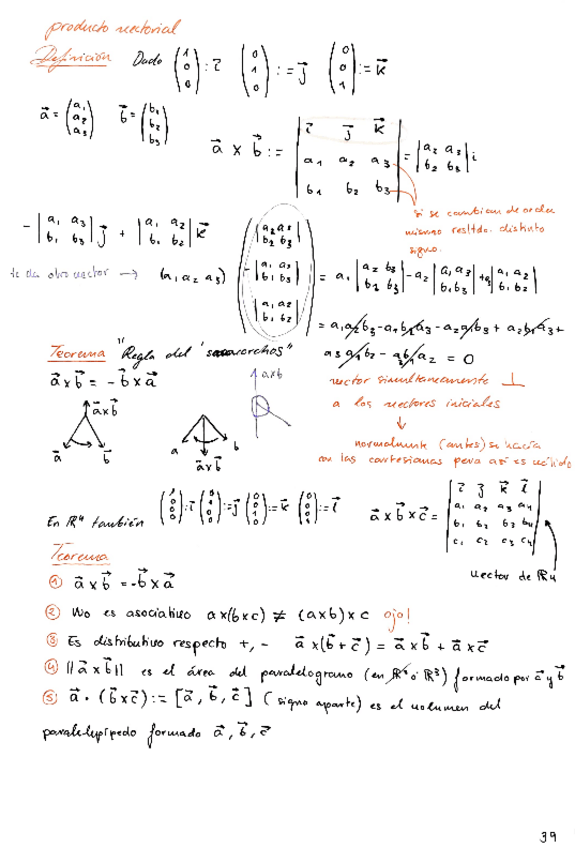 producto vectorial
Definición Dado (1 0 0) := i⃗ (0 1 0) := j⃗ (0 0 1) := k⃗
a⃗ = (a₁ a₂ a₃) b⃗ = (b₁ b₂ b₃)
a⃗ x b⃗ := | i⃗ j⃗ k⃗ ; a₁ a₂ a₃ ; b₁ b₂ b₃ | = | a₂ a₃ ; b₂ b₃ | i
si se cambian de orden
mismo resltdo. distinto
signo.
- | a₁ a₃ ; b₁ b₃ | j⃗ + | a₁ a₂ ; b₁ b₂ | k⃗
te da otro vector → (a₁ a₂ a₃) ( | a₂ a₃ ; b₂ b₃ | - | a₁ a₃ ; b₁ b₃ | | a₁ a₂ ; b₁ b₂ | ) = a₁ | a₂ b₃ ; b₂ b₃ | - a₂ | a₁ a₃ ; b₁ b₃ | + a₃ | a₁ a₂ ; b₁ b₂ |
= a₁a₂b₃ - a₁b₂a₃ - a₂a₁b₃ + a₂b₁a₃ +
a₃a₁b₂ - a₃b₁a₂ = 0
Teorema "Regla del sacacorchos"
a⃗ x b⃗ = - b⃗ x a⃗
axb
vector simultaneamente ⊥
a los vectores iniciales
↓
normalmente (antes) se hacía
con las cartesianas pero así es
a⃗xb⃗
a⃗ b⃗
a b
a⃗xb⃗
En ℝ⁴ también (1 0 0 0) := i⃗ (0 1 0 0) := j⃗ (0 0 1 0) := k⃗ (0 0 0 1) := l⃗
a⃗ x b⃗ x c⃗ = | i⃗ j⃗ k⃗ l⃗ ; a₁ a₂ a₃ a₄ ; b₁ b₂ b₃ b₄ ; c₁ c₂ c₃ c₄ |
vector de ℝ4
Teorema
① a⃗ x b⃗ = - b⃗ x a⃗
② No es asociativo ax(bxc) ≠ (axb)xc ojo!
③ Es distributivo respecto +, - a⃗ x(b⃗ + c⃗) = a⃗ x b⃗ + a⃗ x c⃗
④ ||a⃗ x b⃗|| es el área del paralelogramo (en ℝ² ó ℝ³) formado por a⃗ y b⃗
⑤ a⃗ · (b⃗xc⃗) := [a⃗, b⃗, c⃗] (signo aparte) es el volumen del
paralelepípedo formado a⃗, b⃗, c⃗
39